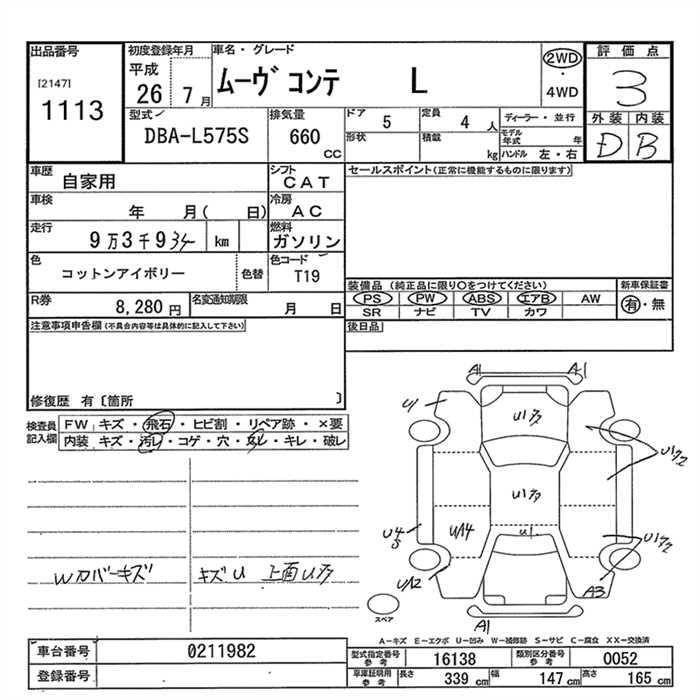 出品番号 初度登録年月 車名・グレード 評価点
[2147] 平成 ムーヴ コンテ L 2WD 3
1113 26 7月 ・ 4WD
型式 排気量 ドア 定員 ディーラー・並行 外装 内装
DBA-L575S 660 CC 5 4 人 D B
形状 積載 kg モデル年式 年
ハンドル 左・右
車歴 自家用 シフト CAT セールスポイント(正常に機能するものに限ります)
車検 年 月( 日) 冷房 AC
走行 9万3千9 km 燃料 ガソリン
色 コットンアイボリー 色替 色コード T19
装備品 (純正品に限り○をつけてください) 新車保証書
R券 8,280円 名変通知期限 月 日 PS PW ABS エアB AW 有・無
SR ナビ TV カワ
注意事項申告欄(不具合内容等は具体的に記入して下さい) 後日品
修復歴 有〔箇所 〕
検査員記入欄 FW キズ・飛石・ヒビ割・リペア跡・×要
内装 キズ・汚レ・コゲ・穴・・キレ・破レ
A1 A-1
U1 U1
U1
U1
U4
S
U14
U1
U12 A3
Wカバーキズ キズU 上面U
スペア
A1
A-キズ E-エクボ U-凹み W-補修跡 S-サビ C-腐食 XX-交換済
車台番号 0211982 型式指定番号参考 16138 類別区分番号参考 0052
登録番号 車庫証明用参考 長さ 339 cm 幅 147 cm 高さ 165 cm